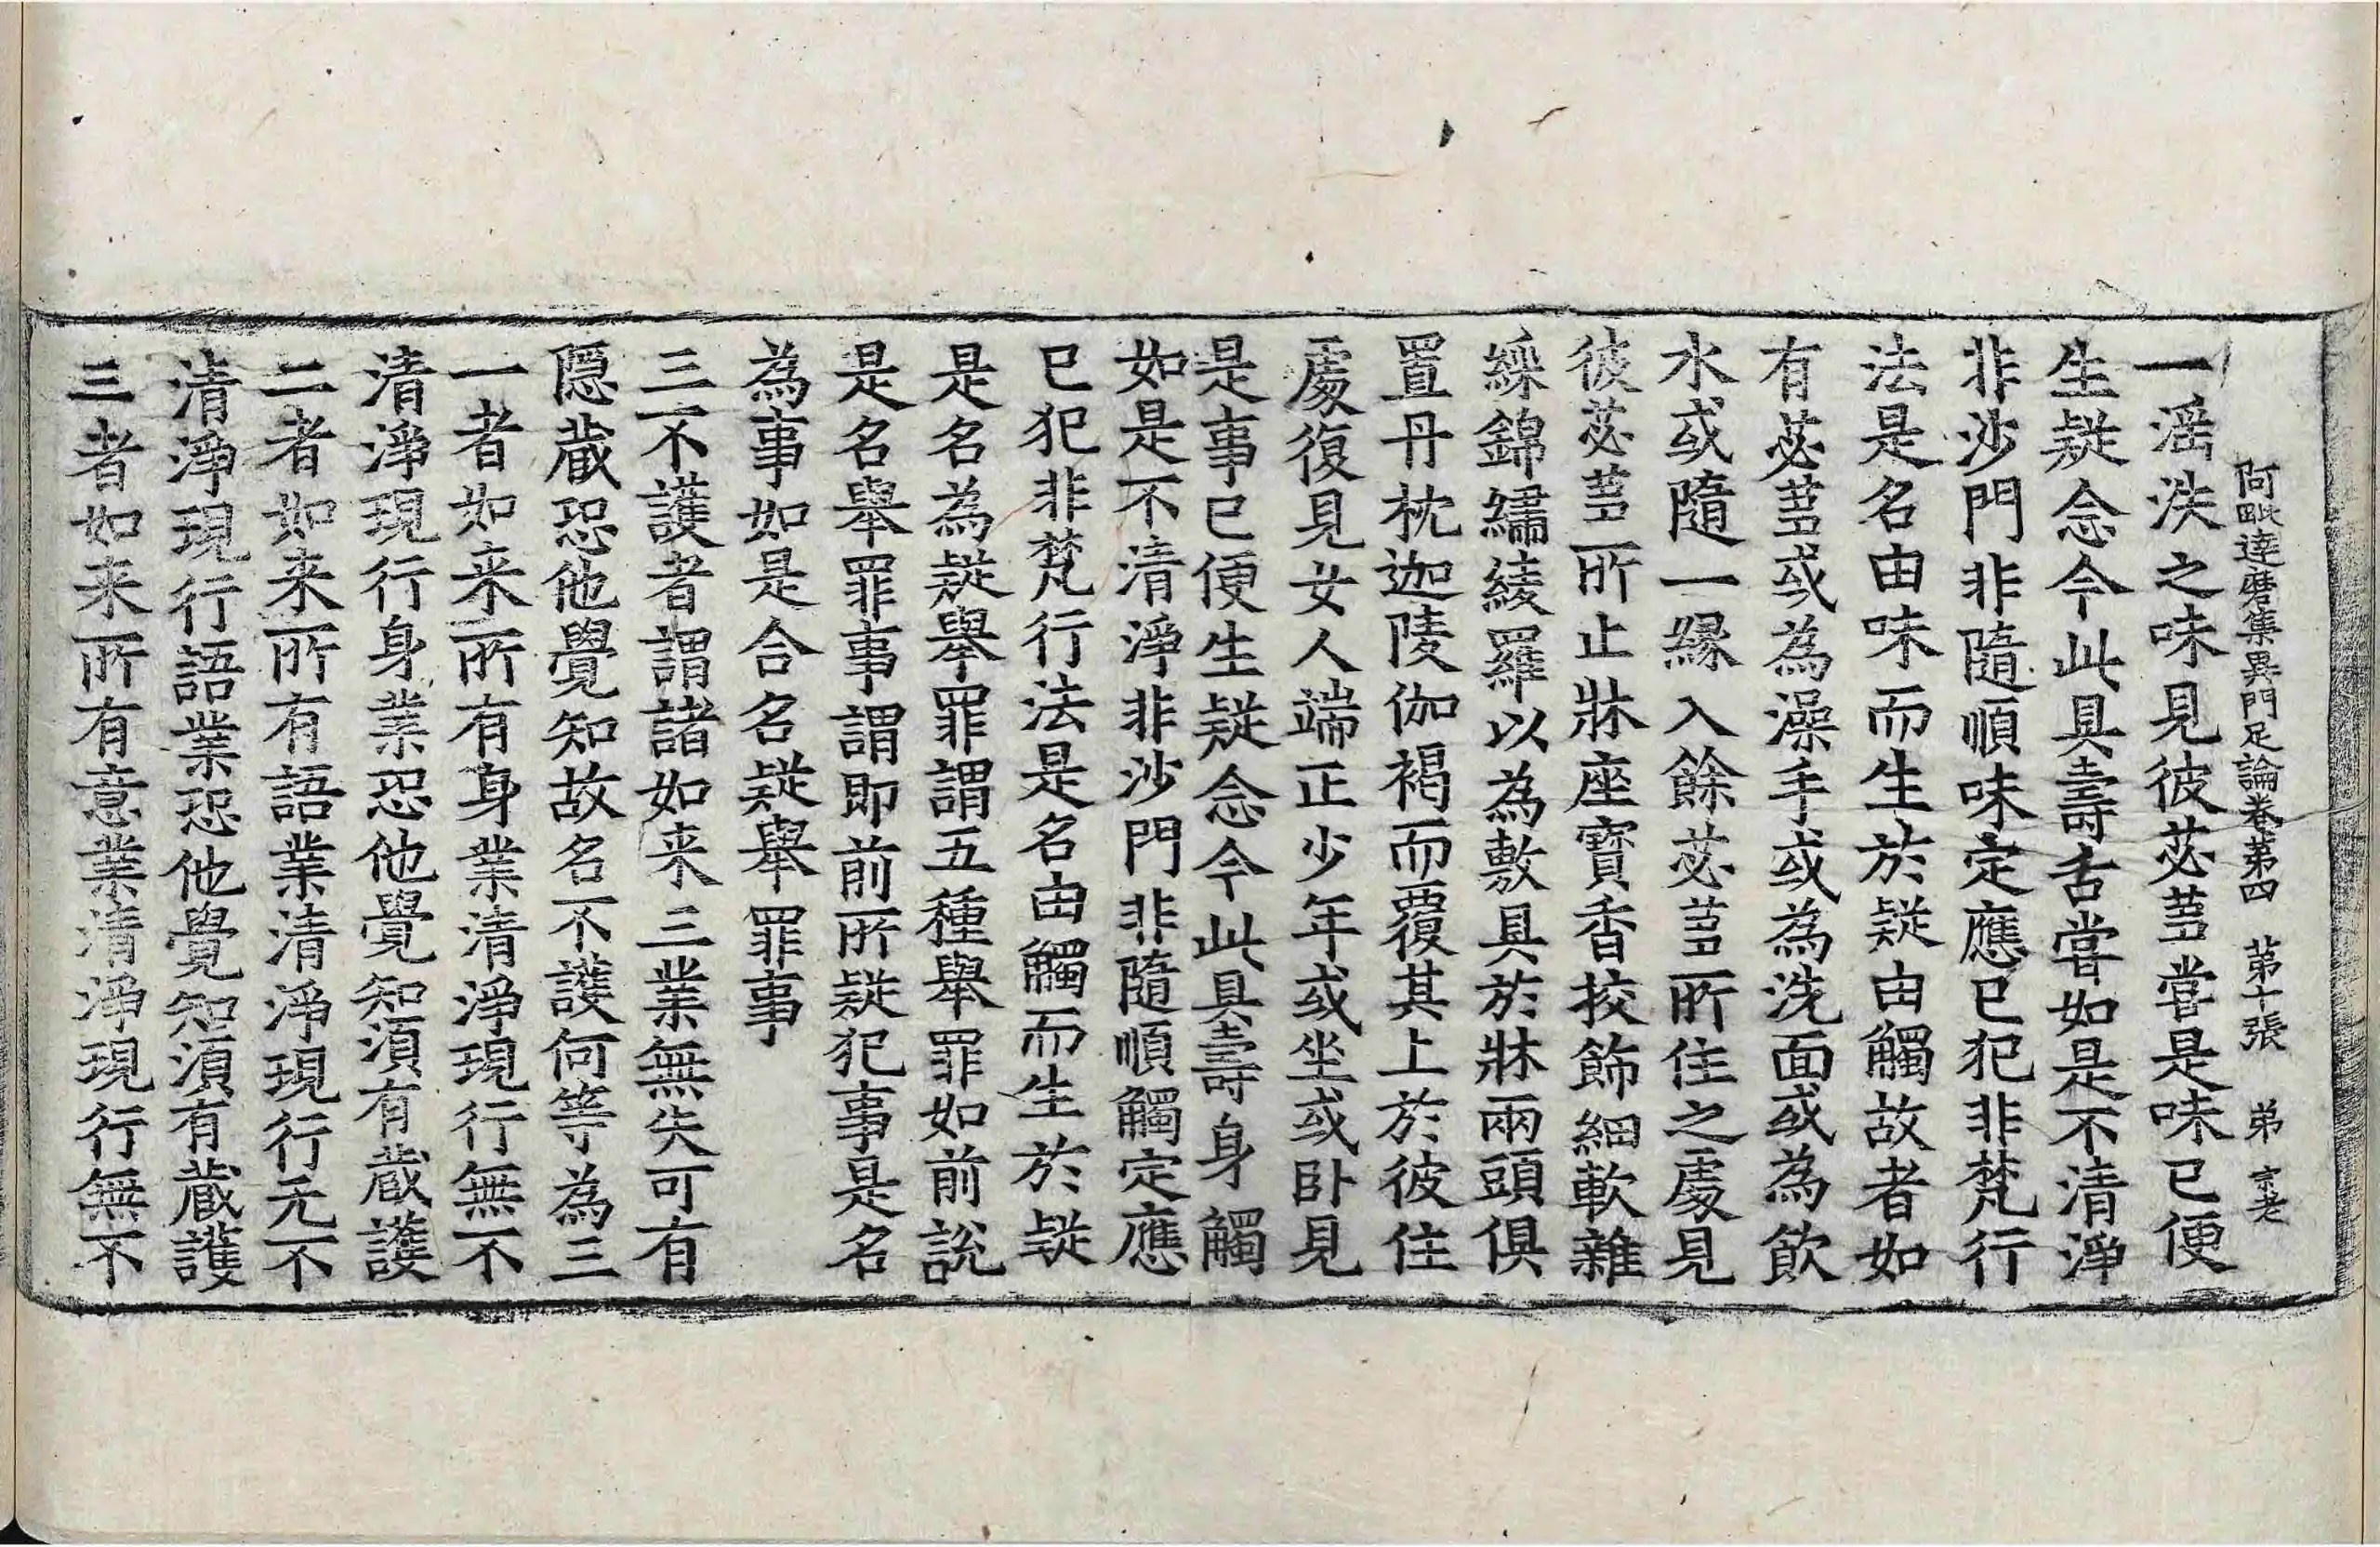 阿毗達磨集異門足論卷第四 第十張 弟 京老
一滛泆之味見彼苾蒭甞是味已便
生疑念今此具壽舌甞如是不清淨
非沙門非隨順味定應已犯非梵行
法是名由味而生於疑由觸故者如
有苾蒭或為澡手或為洗面或為飮
水或隨一緣入餘苾蒭所住之處見
彼苾蒭所止牀座寶香挍飾細軟雜
綵錦繡綾羅以為敷具於牀兩頭俱
置丹枕迦陵伽褐而覆其上於彼住
處復見女人端正少年或坐或卧見
是事已便生疑念今此具壽身觸
如是不清淨非沙門非隨順觸定應
已犯非梵行法是名由觸而生於疑
是名為疑舉罪謂五種舉罪如前說
是名舉罪事謂即前所疑犯事是名
為事如是合名疑舉罪事
三不護者謂諸如来三業無失可有
隱藏恐他覺知故名不護何等為三
一者如来所有身業清淨現行無不
清淨現行身業恐他覺知須有藏護
二者如来所有語業清淨現行无不
清淨現行語業恐他覺知須有藏護
三者如来所有意業清淨現行無不